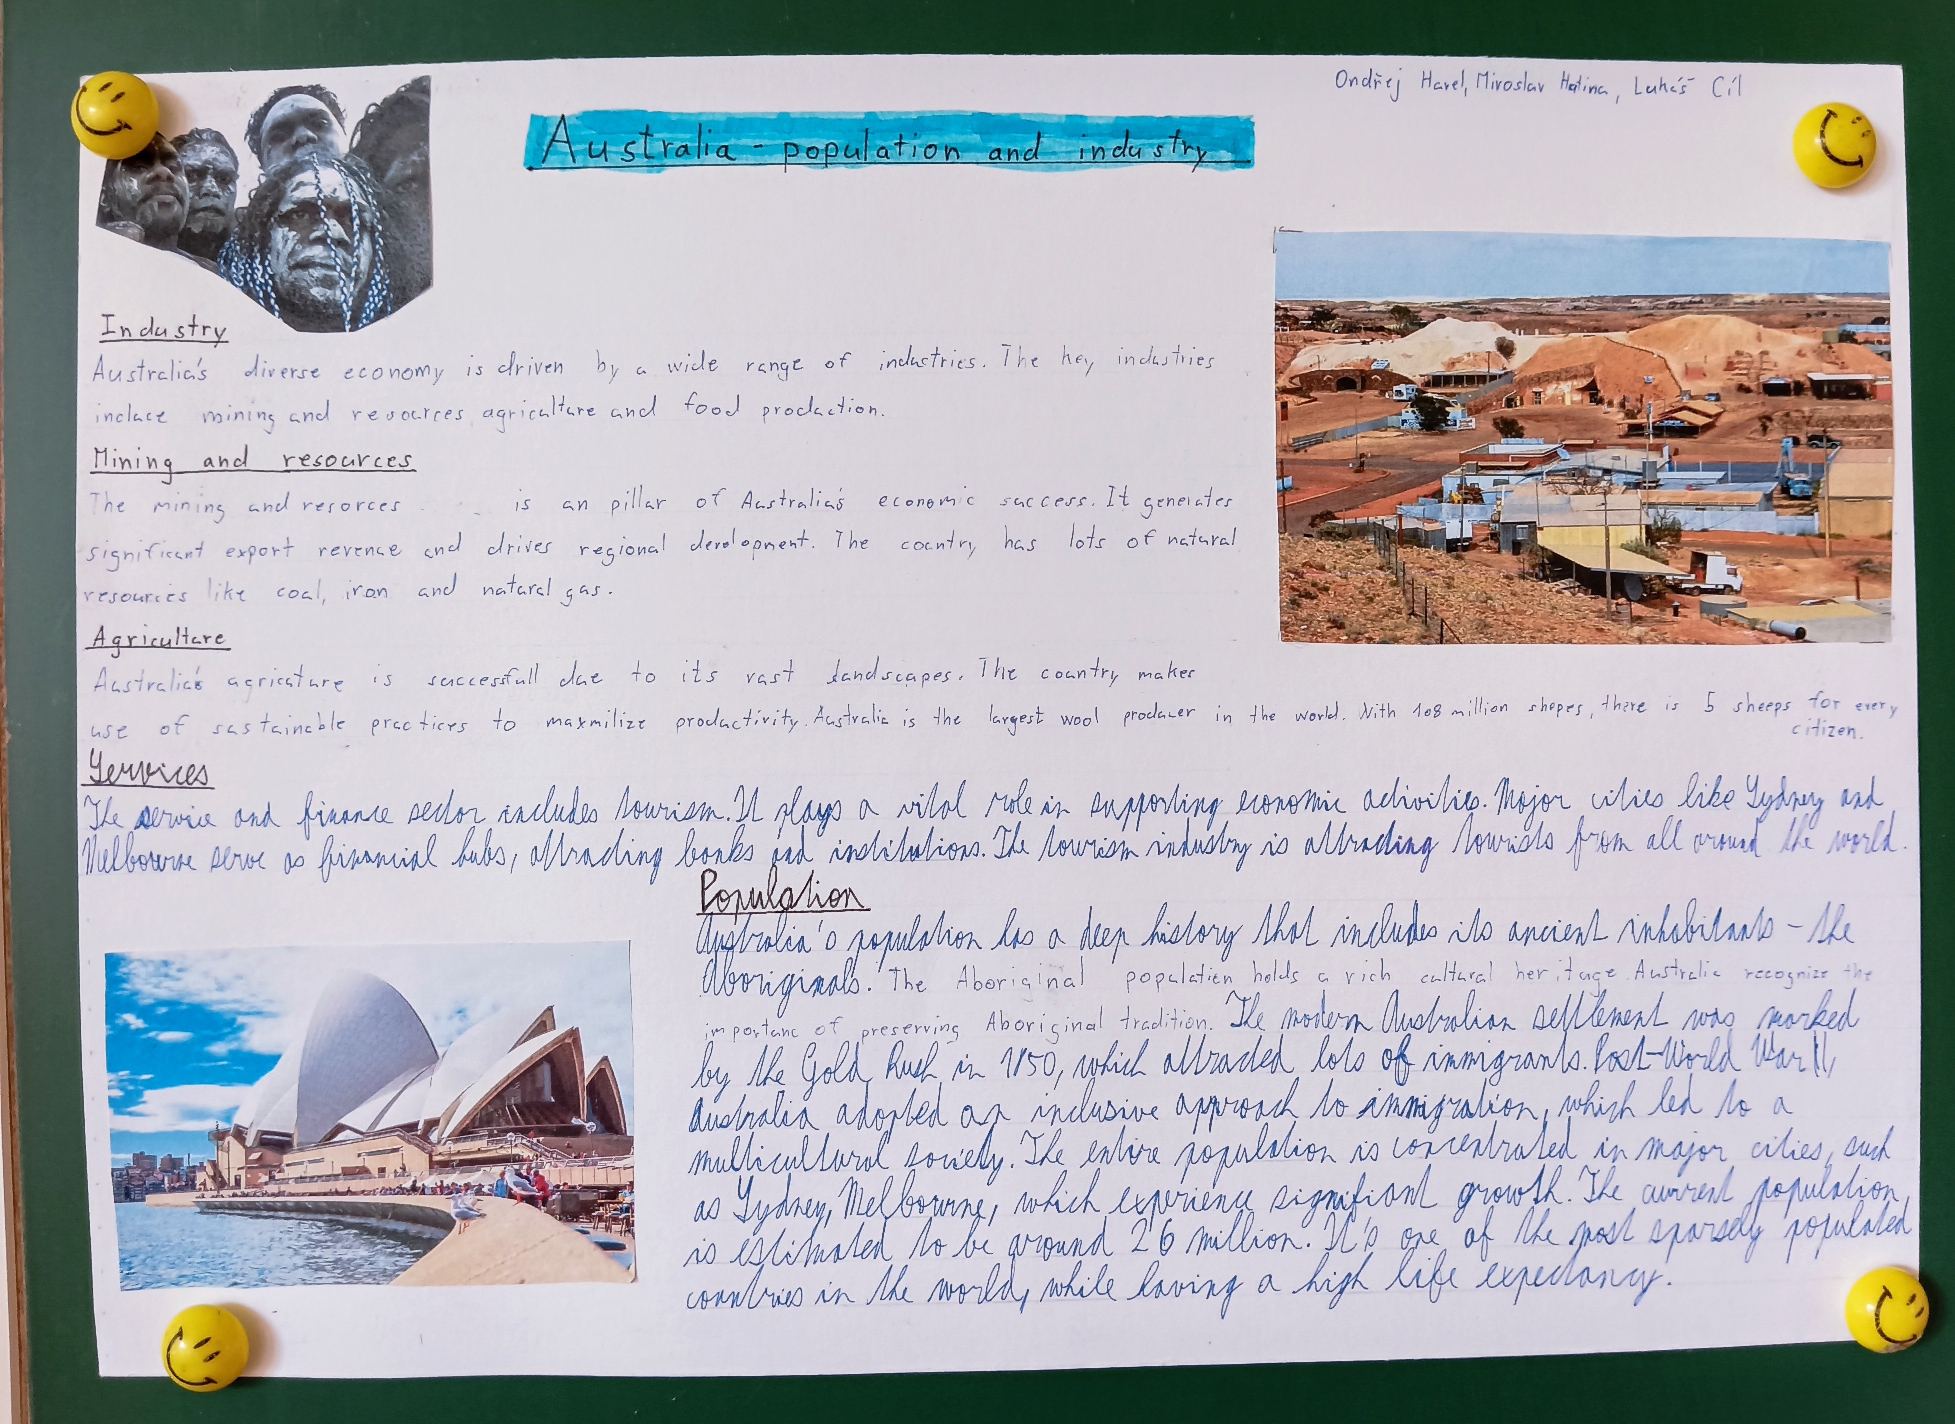 Ondřej Havel, Miroslav Hatina, Lukáš Cíl
Australia - population and industry
Industry
Australia's diverse economy is driven by a wide range of industries. The key industries
incluce mining and resources, agriculture and food production.
Mining and resources
The mining and resorces is an pillar of Australia's economic success. It generates
significant export revenue and drives regional development. The country has lots of natural
resources like coal, iron and natural gas.
Agriculture
Australia's agricuture is successfull due to its vast landscapes. The country makes
use of sustainable practices to maxmilize productivity. Australia is the largest wool producer in the world. With 108 million shepes, there is 5 sheeps for every
citizen.
Services
The service and finance sector includes tourism. It plays a vital role in supporting economic activities. Major cities like Sydney and
Melbourne serve as financial hubs, attracting banks and institutions. The tourism industry is attracting tourists from all around the world.
Population
Australia's population has a deep history that includes its ancient inhabitants - the
Aboriginals. The Aboriginal population holds a rich cultural heritage. Australia recognize the
importanc of preserving Aboriginal tradition. The modern Australian settlement was marked
by the Gold Rush in 1850, which attracted lots of immigrants. Post-World War II,
Australia adopted an inclusive approach to immigration, which led to a
multicultural society. The entire population is concentrated in major cities, such
as Sydney, Melbourne, which experience signifiant growth. The current population,
is estimated to be around 26 million. It's one of the most sparsely populated
countries in the world, while having a high life expectancy.